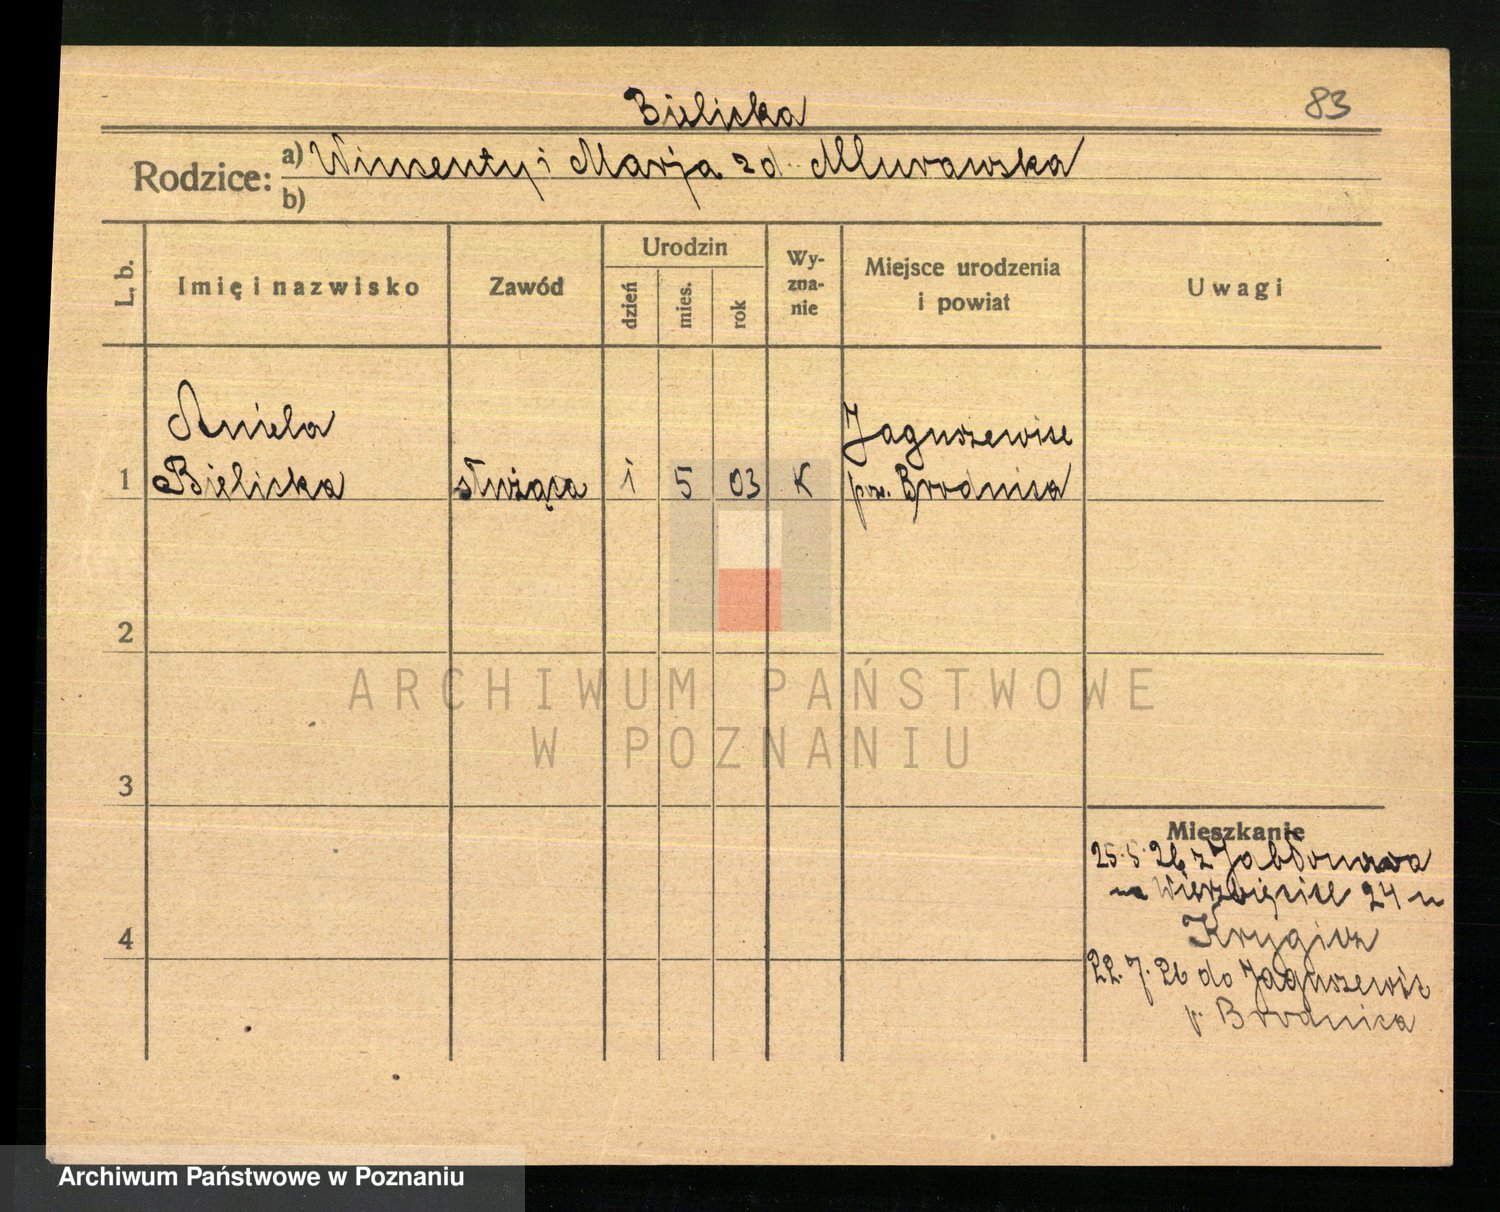 Bielicka
83
Rodzice: a) Wincenty i Marja z d. Murawska
b)
L. b. Imię i nazwisko Zawód Urodzin dzień mies. rok Wyznanie Miejsce urodzenia i powiat Uwagi
Aniela Jaguszewice
1 Bielicka służąca 1 5 03 K pow. Brodnica
2
ARCHIWUM PAŃSTWOWE
W POZNANIU
3
Mieszkanie
25.5.26 z Jabłonowa
na Wierzbięcice 24 u
Krygier
4
22.7.26 do Jaguszewic
p. Brodnica
Archiwum Państwowe w Poznaniu